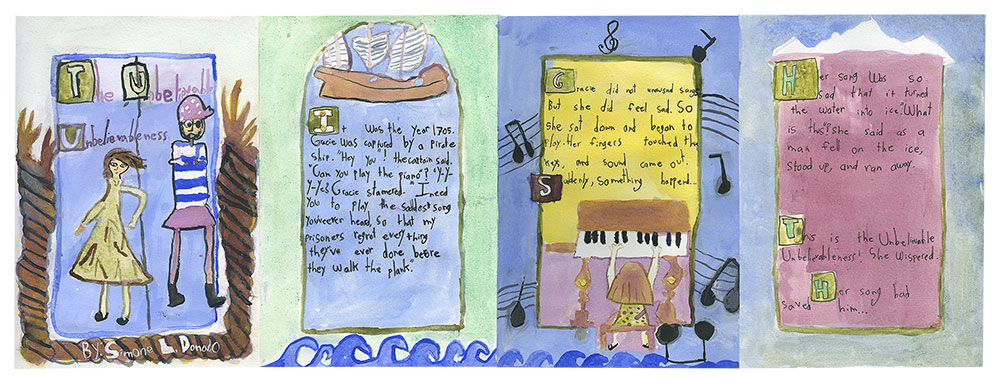 The Unbelievable
Unbelievable
Unbelievableness
By. Simone L. Donald
It was the year 1705.
Gracie was captured by a pirate
ship. "Hey You"! the captain said.
"Can you play the piano"? "Y-Y-
Y-Yes Gracie stamered. "I need
You to play the saddest song
you've ever heard, so that my
prisoners regret everything
they've ever done before
they walk the plank."
Gracie did not unusad songs
But she did feel sad. So
she sat down and began to
play. Her fingers touched the
keys, and sound came out.
Suddenly, something happend...
Her song was so
sad that it turned
the water into ice. "What
is this" she said as a
man fell on the ice,
stood up, and ran away.
This is the Unbelievable
Unbelievableness! She wispered.
Her song had
saved him...